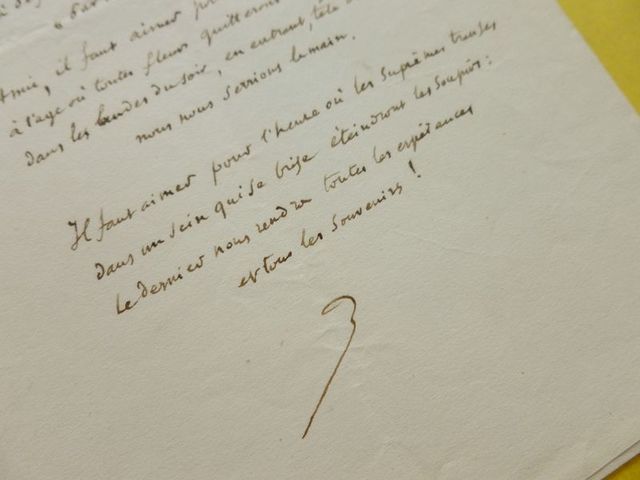 Amie, il faut aimer
à l'age où toutes fleurs quitteront
dans les landes du soir, en entrant, tête
nous nous serrions la main.
Il faut aimer pour l'heure où les suprêmes transes
dans un sein qui se brise éteindront les soupirs :
Le dernier nous rendra toutes les espérances
et tous les souvenirs !